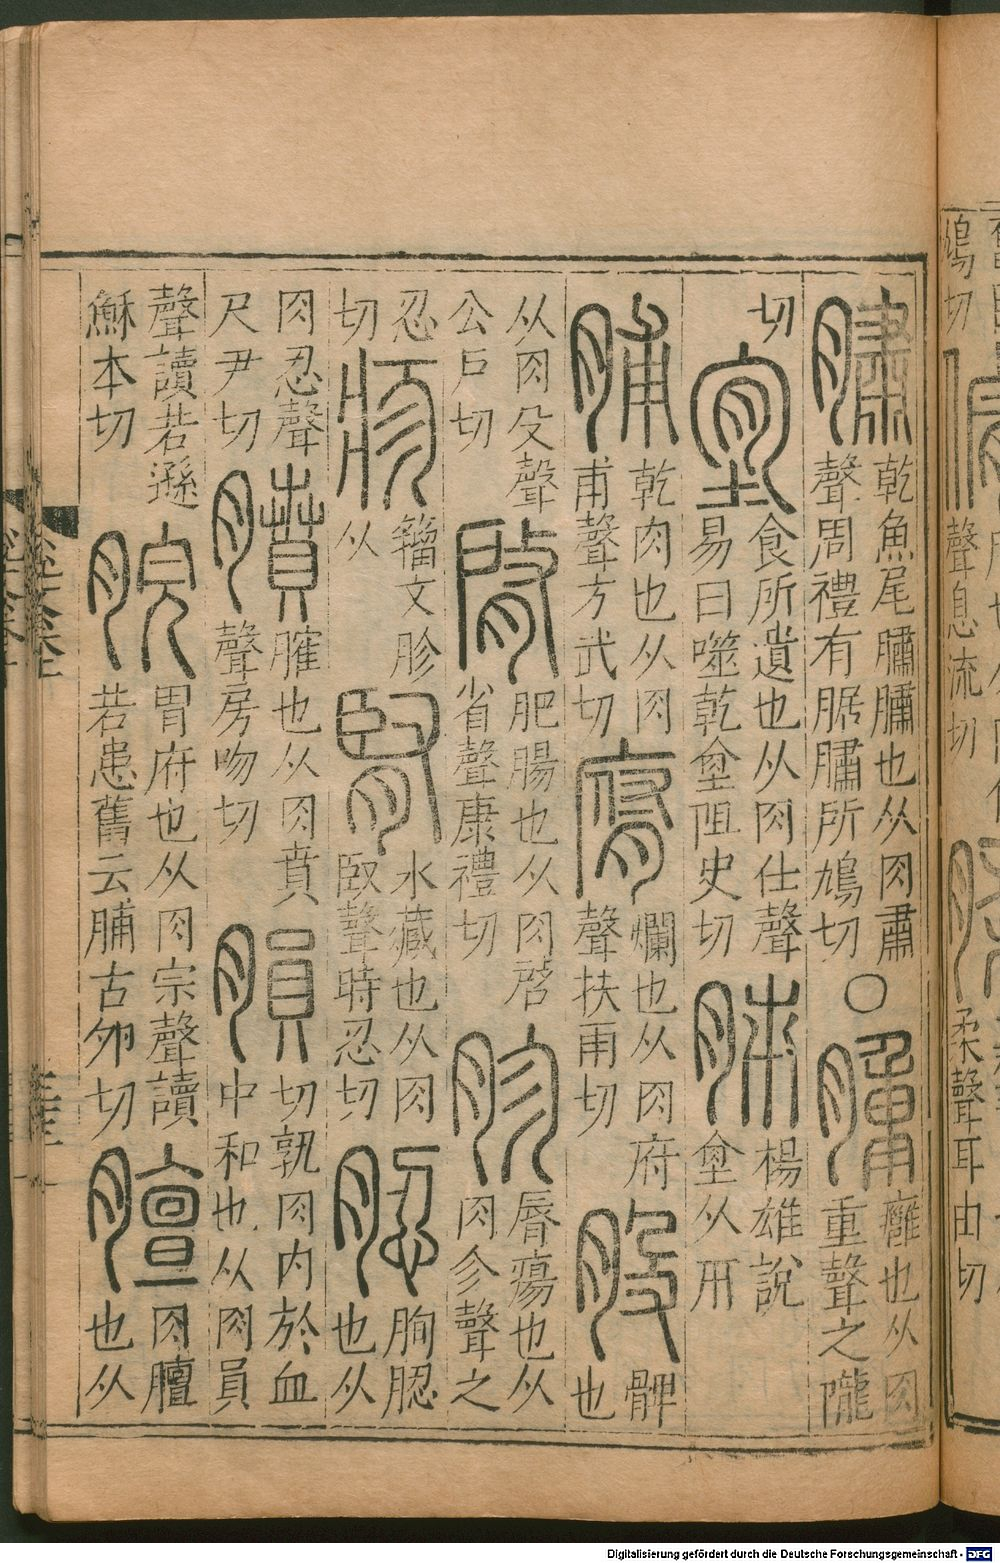 鳩切
聲息流切
柔聲耳由切
䐹乾魚尾䐹䐹也从肉肅
聲周禮有腒䐹所鳩切○腫癰也从肉
重聲之隴
切𡎺食所遺也从肉仕聲
易曰噬乾𡎺阻史切胏楊雄說
𡎺从𠂔
脯乾肉也从肉
甫聲方武切腐爛也从肉府
聲扶雨切股髀
也
从肉殳聲
公戶切䏿肥腸也从肉啓
省聲康禮切胗脣瘍也从
肉㐱聲之
忍
切疹籒文胗
从腎水藏也从肉
臤聲時忍切䏰朐䏰
也从
肉忍聲
尺尹切膹臛也从肉賁
聲房吻切䐣切孰肉內於血
中和也从肉員
聲讀若遜
穌本切脘胃府也从肉宗聲讀
若患舊云脯古夘切膻肉膻
也从
Digitalisierung gefördert durch die Deutsche Forschungsgemeinschaft - DFG